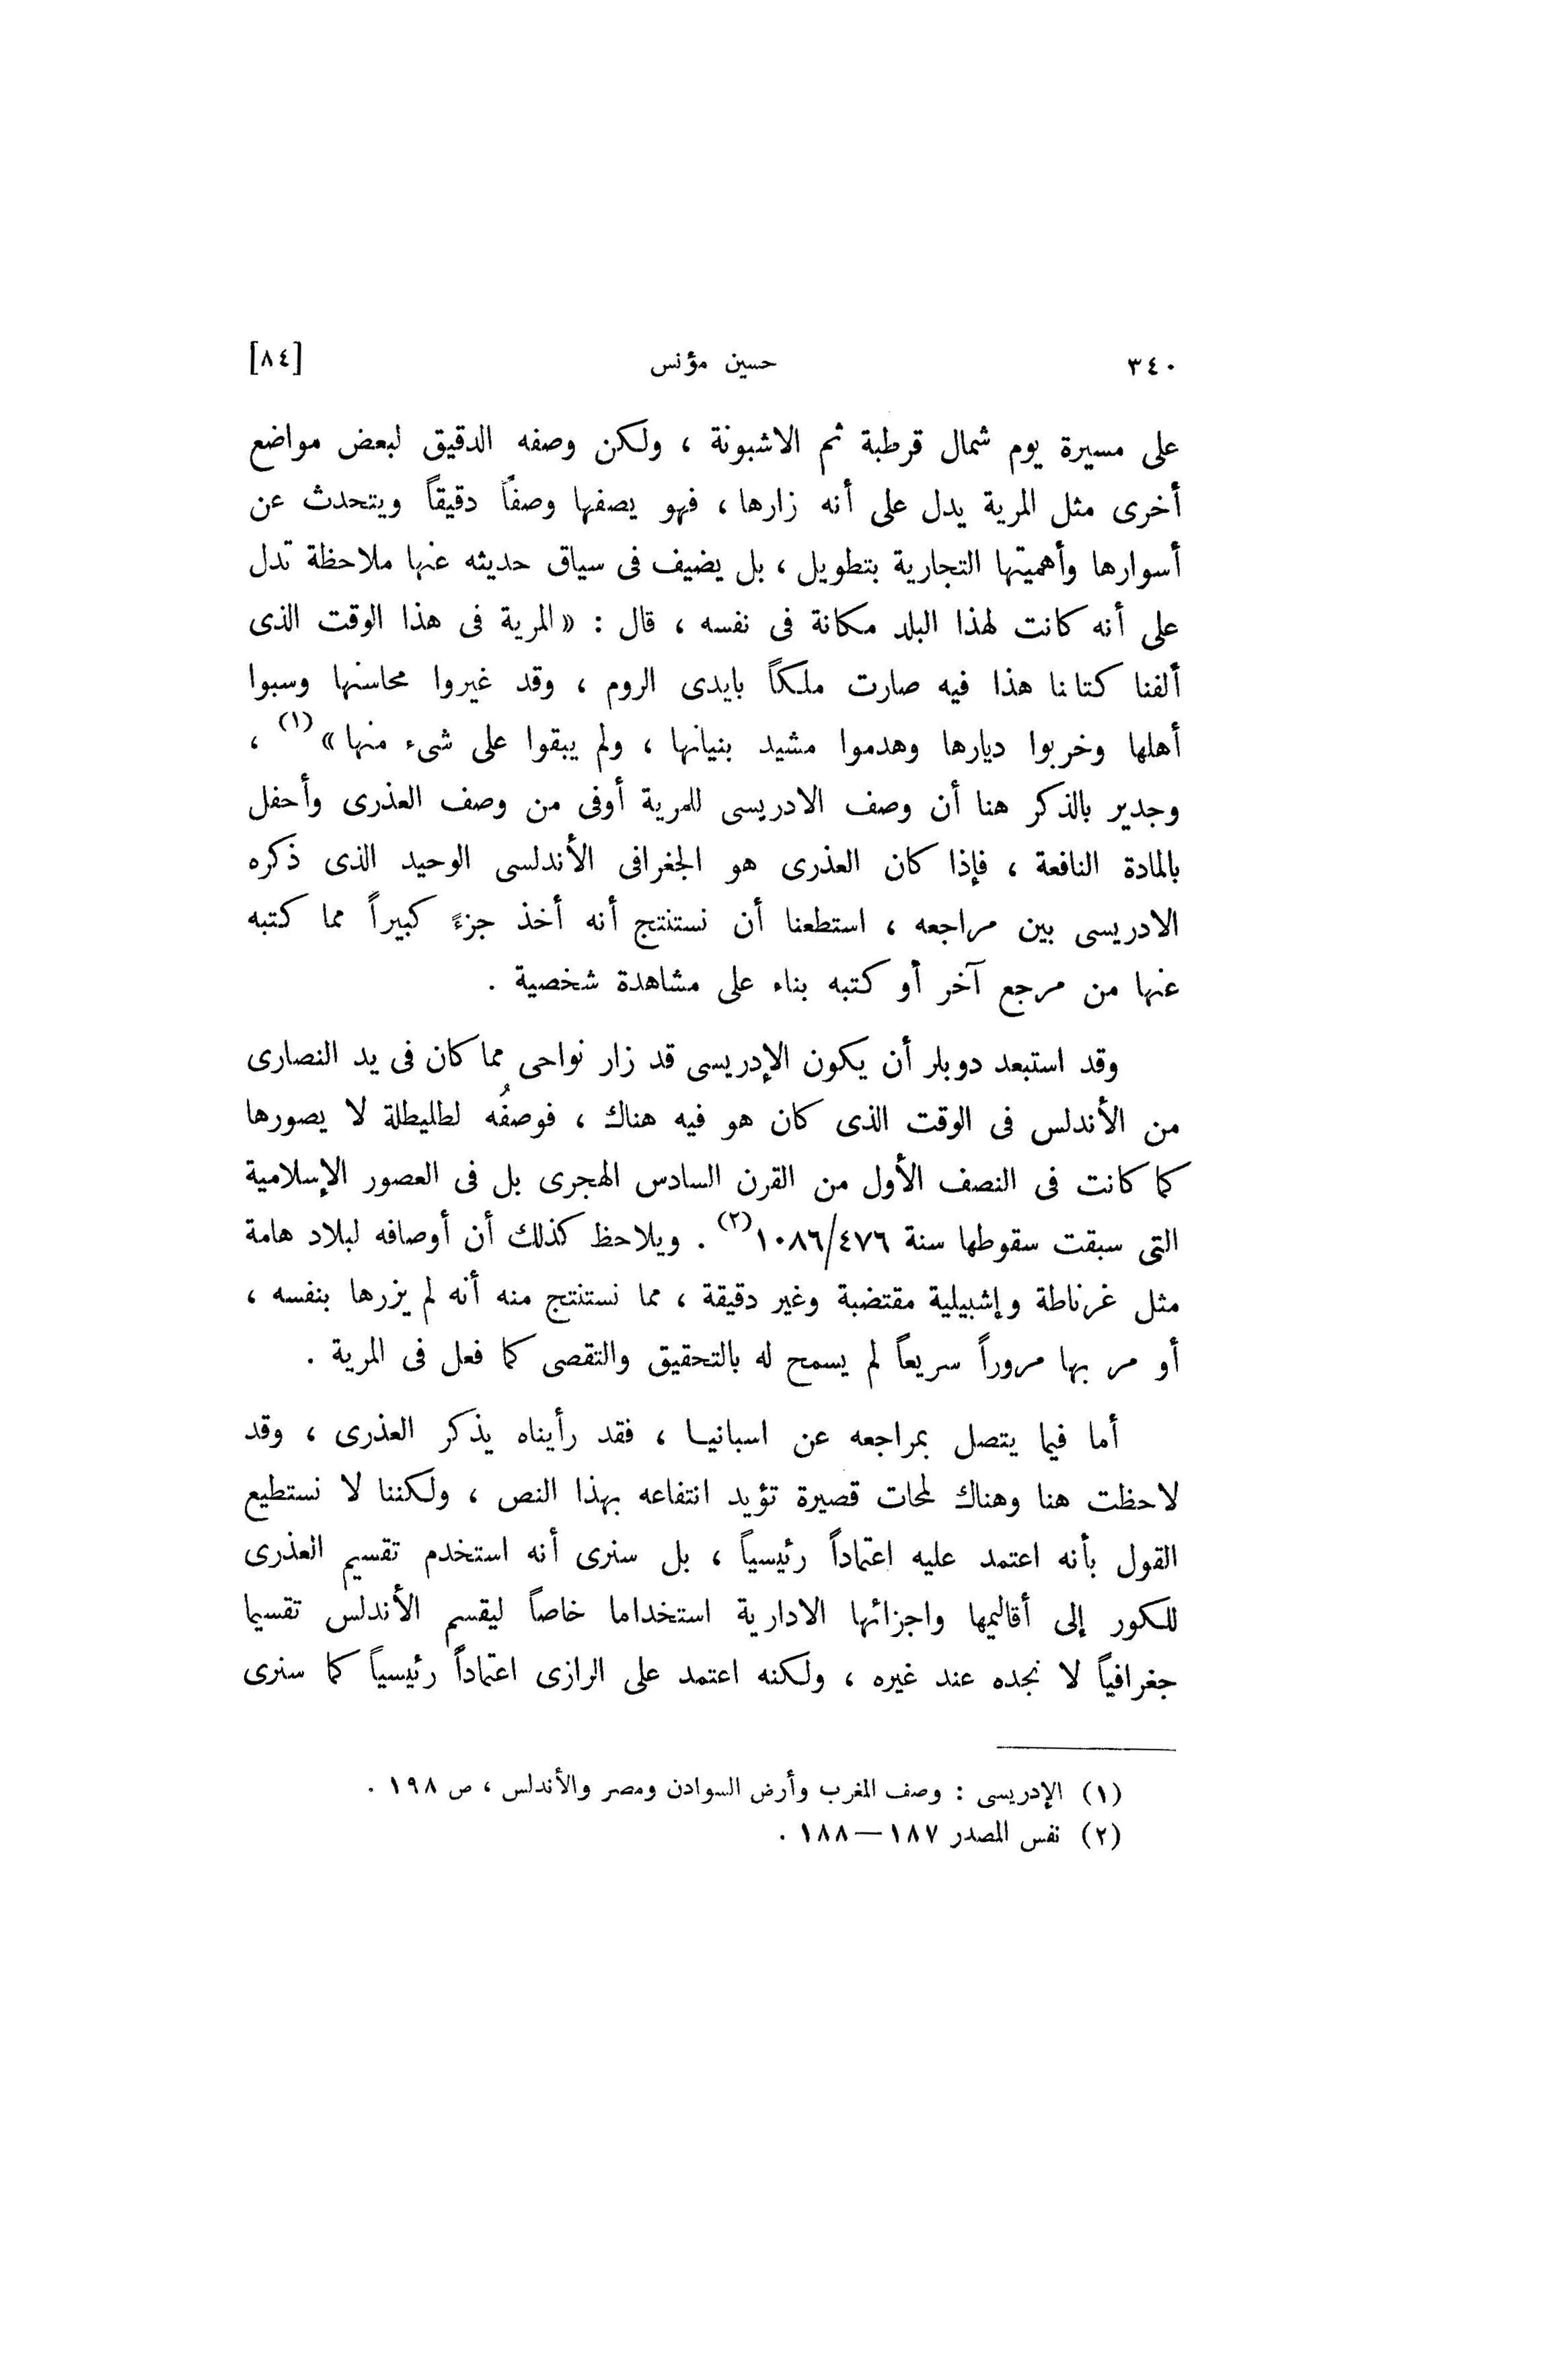 ٣٤٠ حسين مؤنس [٨٤]
على مسيرة يوم شمال قرطبة ثم الاشبونة ، ولكن وصفه الدقيق لبعض مواضع
أخرى مثل المرية يدل على أنه زارها ، فهو يصفها وصفاً دقيقاً ويتحدث عن
أسوارها وأهميتها التجارية بتطويل ، بل يضيف فى سياق حديثه عنها ملاحظة تدل
على أنه كانت لهذا البلد مكانة فى نفسه ، قال : «المرية فى هذا الوقت الذى
ألفنا كتابنا هذا فيه صارت ملكاً بايدى الروم ، وقد غيروا محاسنها وسبوا
أهلها وخربوا ديارها وهدموا مشيد بنيانها ، ولم يبقوا على شىء منها» (١) ،
وجدير بالذكر هنا أن وصف الادريسى للمرية أوفى من وصف العذرى وأحفل
بالمادة النافعة ، فإذا كان العذرى هو الجغرافى الأندلسى الوحيد الذى ذكره
الادريسى بين مراجعه ، استطعنا أن نستنتج أنه أخذ جزءً كبيراً مما كتبه
عنها من مرجع آخر أو كتبه بناء على مشاهدة شخصية .
وقد استبعد دوبلر أن يكون الإدريسى قد زار نواحى مما كان فى يد النصارى
من الأندلس فى الوقت الذى كان هو فيه هناك ، فوصفُه لطليطلة لا يصورها
كما كانت فى النصف الأول من القرن السادس الهجرى بل فى العصور الإسلامية
التى سبقت سقوطها سنة ١٠٨٦/٤٧٦ (٢) . ويلاحظ كذلك أن أوصافه لبلاد هامة
مثل غرناطة وإشبيلية مقتضبة وغير دقيقة ، مما نستنتج منه أنه لم يزرها بنفسه ،
أو مر بها مروراً سريعاً لم يسمح له بالتحقيق والتقصى كما فعل فى المرية .
أما فيما يتصل بمراجعه عن اسبانيا ، فقد رأيناه يذكر العذرى ، وقد
لاحظت هنا وهناك لمحات قصيرة تؤيد انتفاعه بهذا النص ، ولكننا لا نستطيع
القول بأنه اعتمد عليه اعتماداً رئيسياً ، بل سنرى أنه استخدم تقسيم العذرى
للكور إلى أقاليمها واجزائها الادارية استخداما خاصاً ليقسم الأندلس تقسيما
جغرافياً لا نجده عند غيره ، ولكنه اعتمد على الرازى اعتماداً رئيسياً كما سنرى
(١) الإدريسى : وصف المغرب وأرض السوادن ومصر والأندلس ، ص ١٩٨ .
(٢) نفس المصدر ١٨٧ — ١٨٨ .